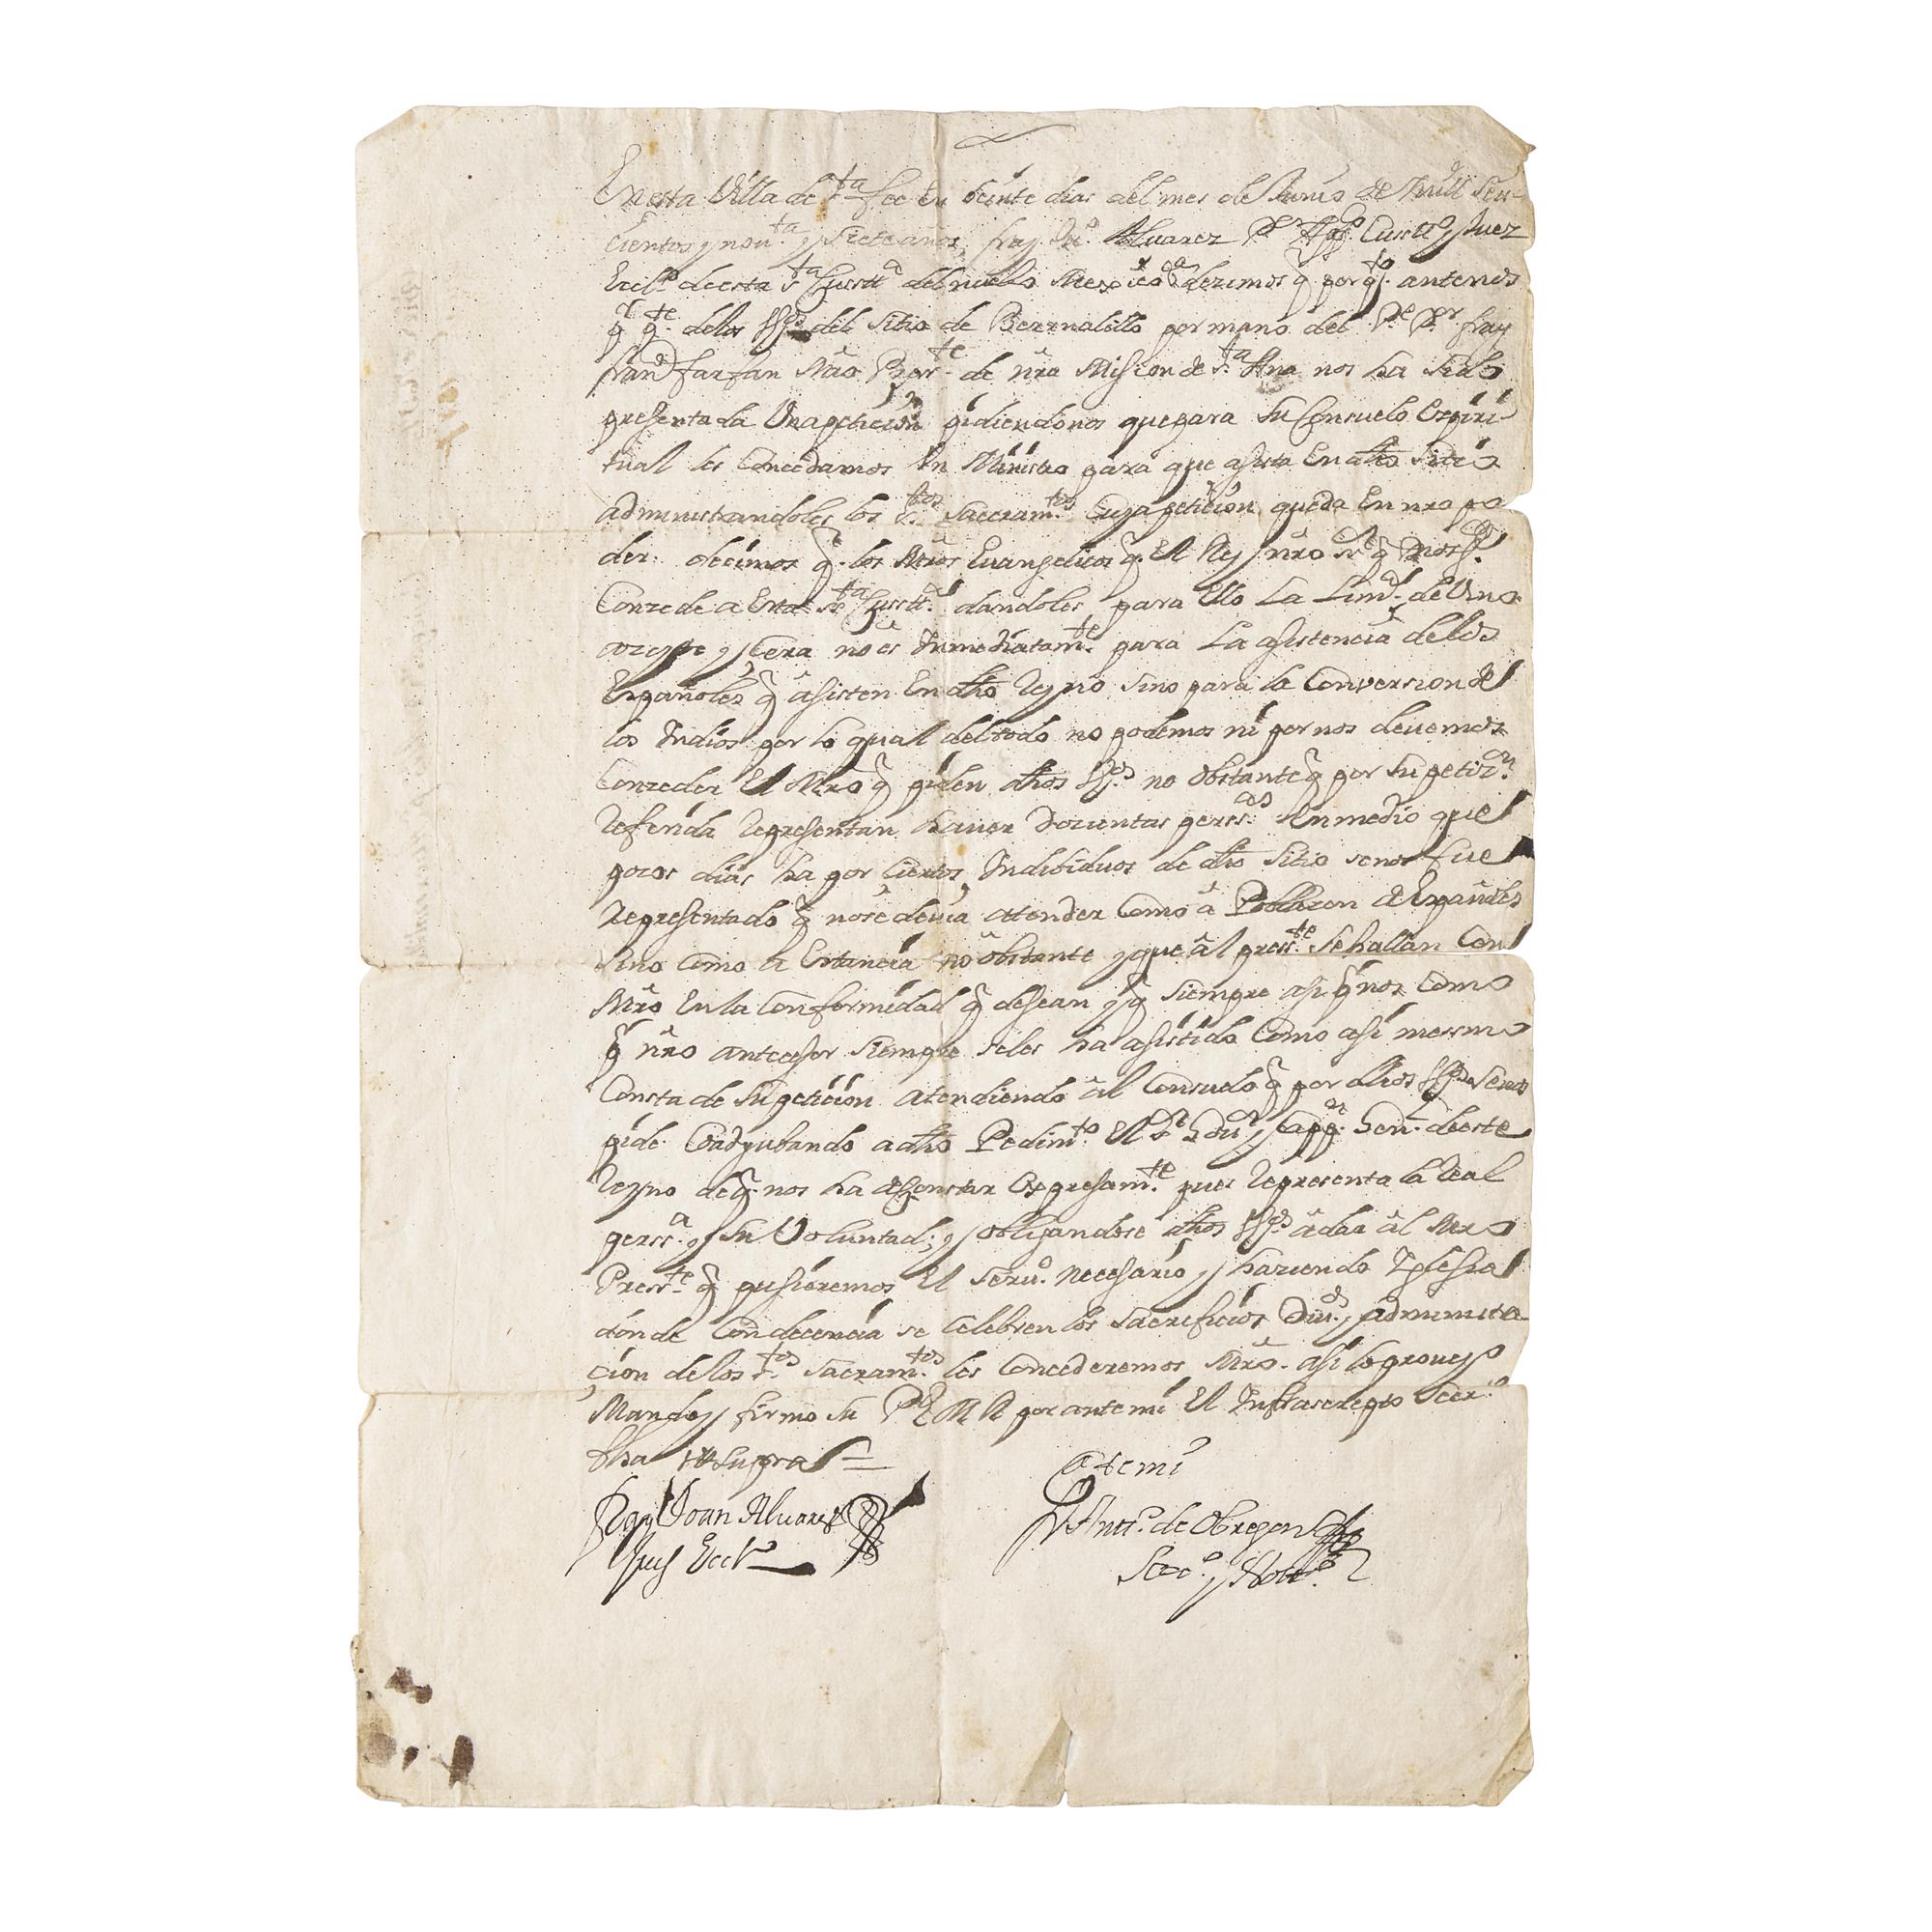 En esta Villa de S.ta fee en veinte dias del mes de Junio de mill seis-
cientos y nou.ta y siete años, fray Ju.o Alvarez P.r App.co Cust.o y Juez
Ecl.o de esta s.ta Cust.a del nuevo Mexico dezimos q por q.to ante nos
q p.te de los SS.es del sitio de Bernalillo por mano del P.e P.r fray
fran.co farfan Mño Press.te de nra Mision de S.ta Ana nos ha sido
presentada Una peticion pidiendonos que para su Consuelo Espiri
tual les Concedamos Un Ministro para que asista En dho sitio
administrandoles los S.tos Sacram.tos Cuya peticion queda En nro po
der. decimos q. los Mros Evangelicos q. El Rey nro Sr q Dios g.e
Conzede a Esta S.ta Cust.a dandoles para Ello La Lim.a de Vino
azeyte y Cera no es Inmediatam.te para La asistencia de los
Españoles q asisten En dho Reyno, sino para la Conversion de
los Indios por lo qual del todo no podemos ni por nos devemos
Conzeder El Mro q piden dhos SS.es no obstante q por su petiz.on
referida representan haver Dozientas perss.as En medio que
pocos dias ha por Ciertos Individuos de dho sitio se nos fue
Representado q no se devia atender Como a Poblazon de Españoles
sino Como a Estancia no obstante y que al press.te se hallan Con
Mro En la Conformidad q desean y q siempre asi q nos Como
q nro antecesor siempre se les ha asistido Como asi mesmo
Consta de su peticion atendiendo al Consuelo q por dhos SS.es se nos
pide. Coadyubando a dho Pedim.to El S.r Gou.r y Capp.n Gen.l de este
Reyno de q. nos ha de Constar Expresam.te pues Representa la Real
perss.a y su Voluntad; y obligandose dhos SS.es a dar al Mro
Press.te q pusieremos El seru.o necesario y haziendo Yglesia
donde Con decencia se Celebren los Sacrificios Diu.s y administra-
çion de los S.tos Sacram.tos les Concederemos Mro. asi lo proueyo
Mando y firmo su P. M R por ante mi El Infrascripto Secr.o
fha Ut Supra
Fray Joan Alvarez
Juez Eccl.o
Ante mi
Fr Antt.o de Obregon
Secr.o y Nott.o